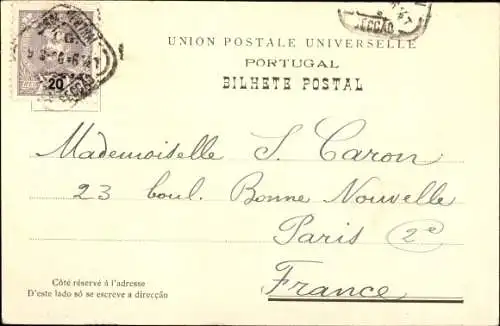 UNION POSTALE UNIVERSELLE
PORTUGAL
BILHETE POSTAL
20
SECÇÃO
Mademoiselle S. Caron
23 boul. Bonne Nouvelle
Paris 2e
France
Côté réservé à l'adresse
D'este lado só se escreve a direcção